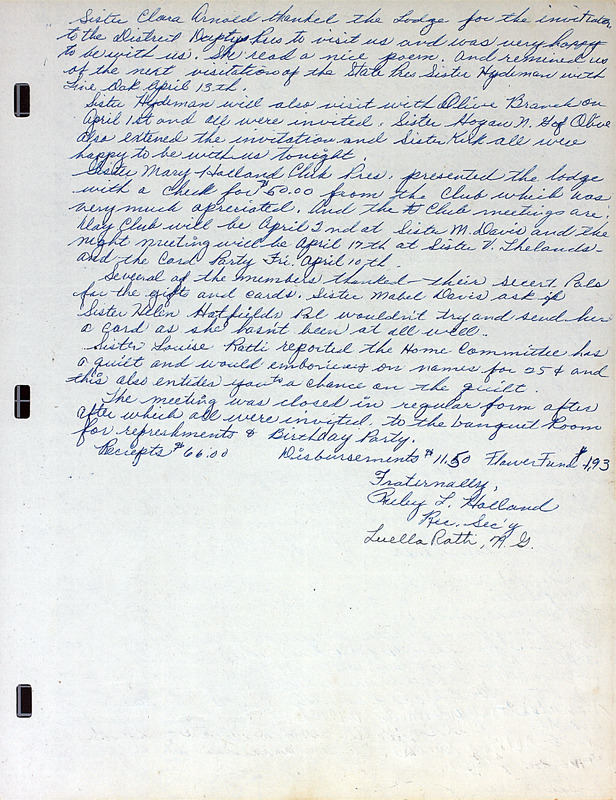 Sister Clara Arnold thanked the Lodge for the invitation
to the District Deputy Pres to visit us and was very happy
to be with us. She read a nice poem. And remined us
of the next visitation of the State Pres Sister Hyderman with
Live Oak April 13th.
Sister Hyderman will also visit with Olive Branch on
April 1st and all were invited. Sister Hogan N.G of Olive
also extened the invitation and Sister Kirk all were
happy to be with us tonight.
Sister Mary Holland Club Pres. presented the lodge
with a check for $50.00 from the Club which was
very much apreciated. And the Club meetings are,
Day Club will be April 2nd at Sister M. Davis and the
night meeting will be April 17th at Sister V. Thelands-
and the Card Party Fri. April 10th.
Several of the members thanked their secert Pals
for the gifts and cards. Sister Mabel Davis ask if
Sister Helen Hatfields Pal wouldn't try and send her
a card as she hasn't been at all well.
Sister Louise Ratti reported the Home Committee has
a quilt and would emboriery on names for 25¢ and
this also entides you to a chance on the quilt.
The meeting was closed in regular form after
after which all were invited to the banquet Room
for refreshments & Birthday Party.
Reciepts $66.00 Disbursements $11.50 Flower Fund $1.93
Fraternally,
Ruby L. Holland
Rec. Sec'y
Luella Ratti, N.G.